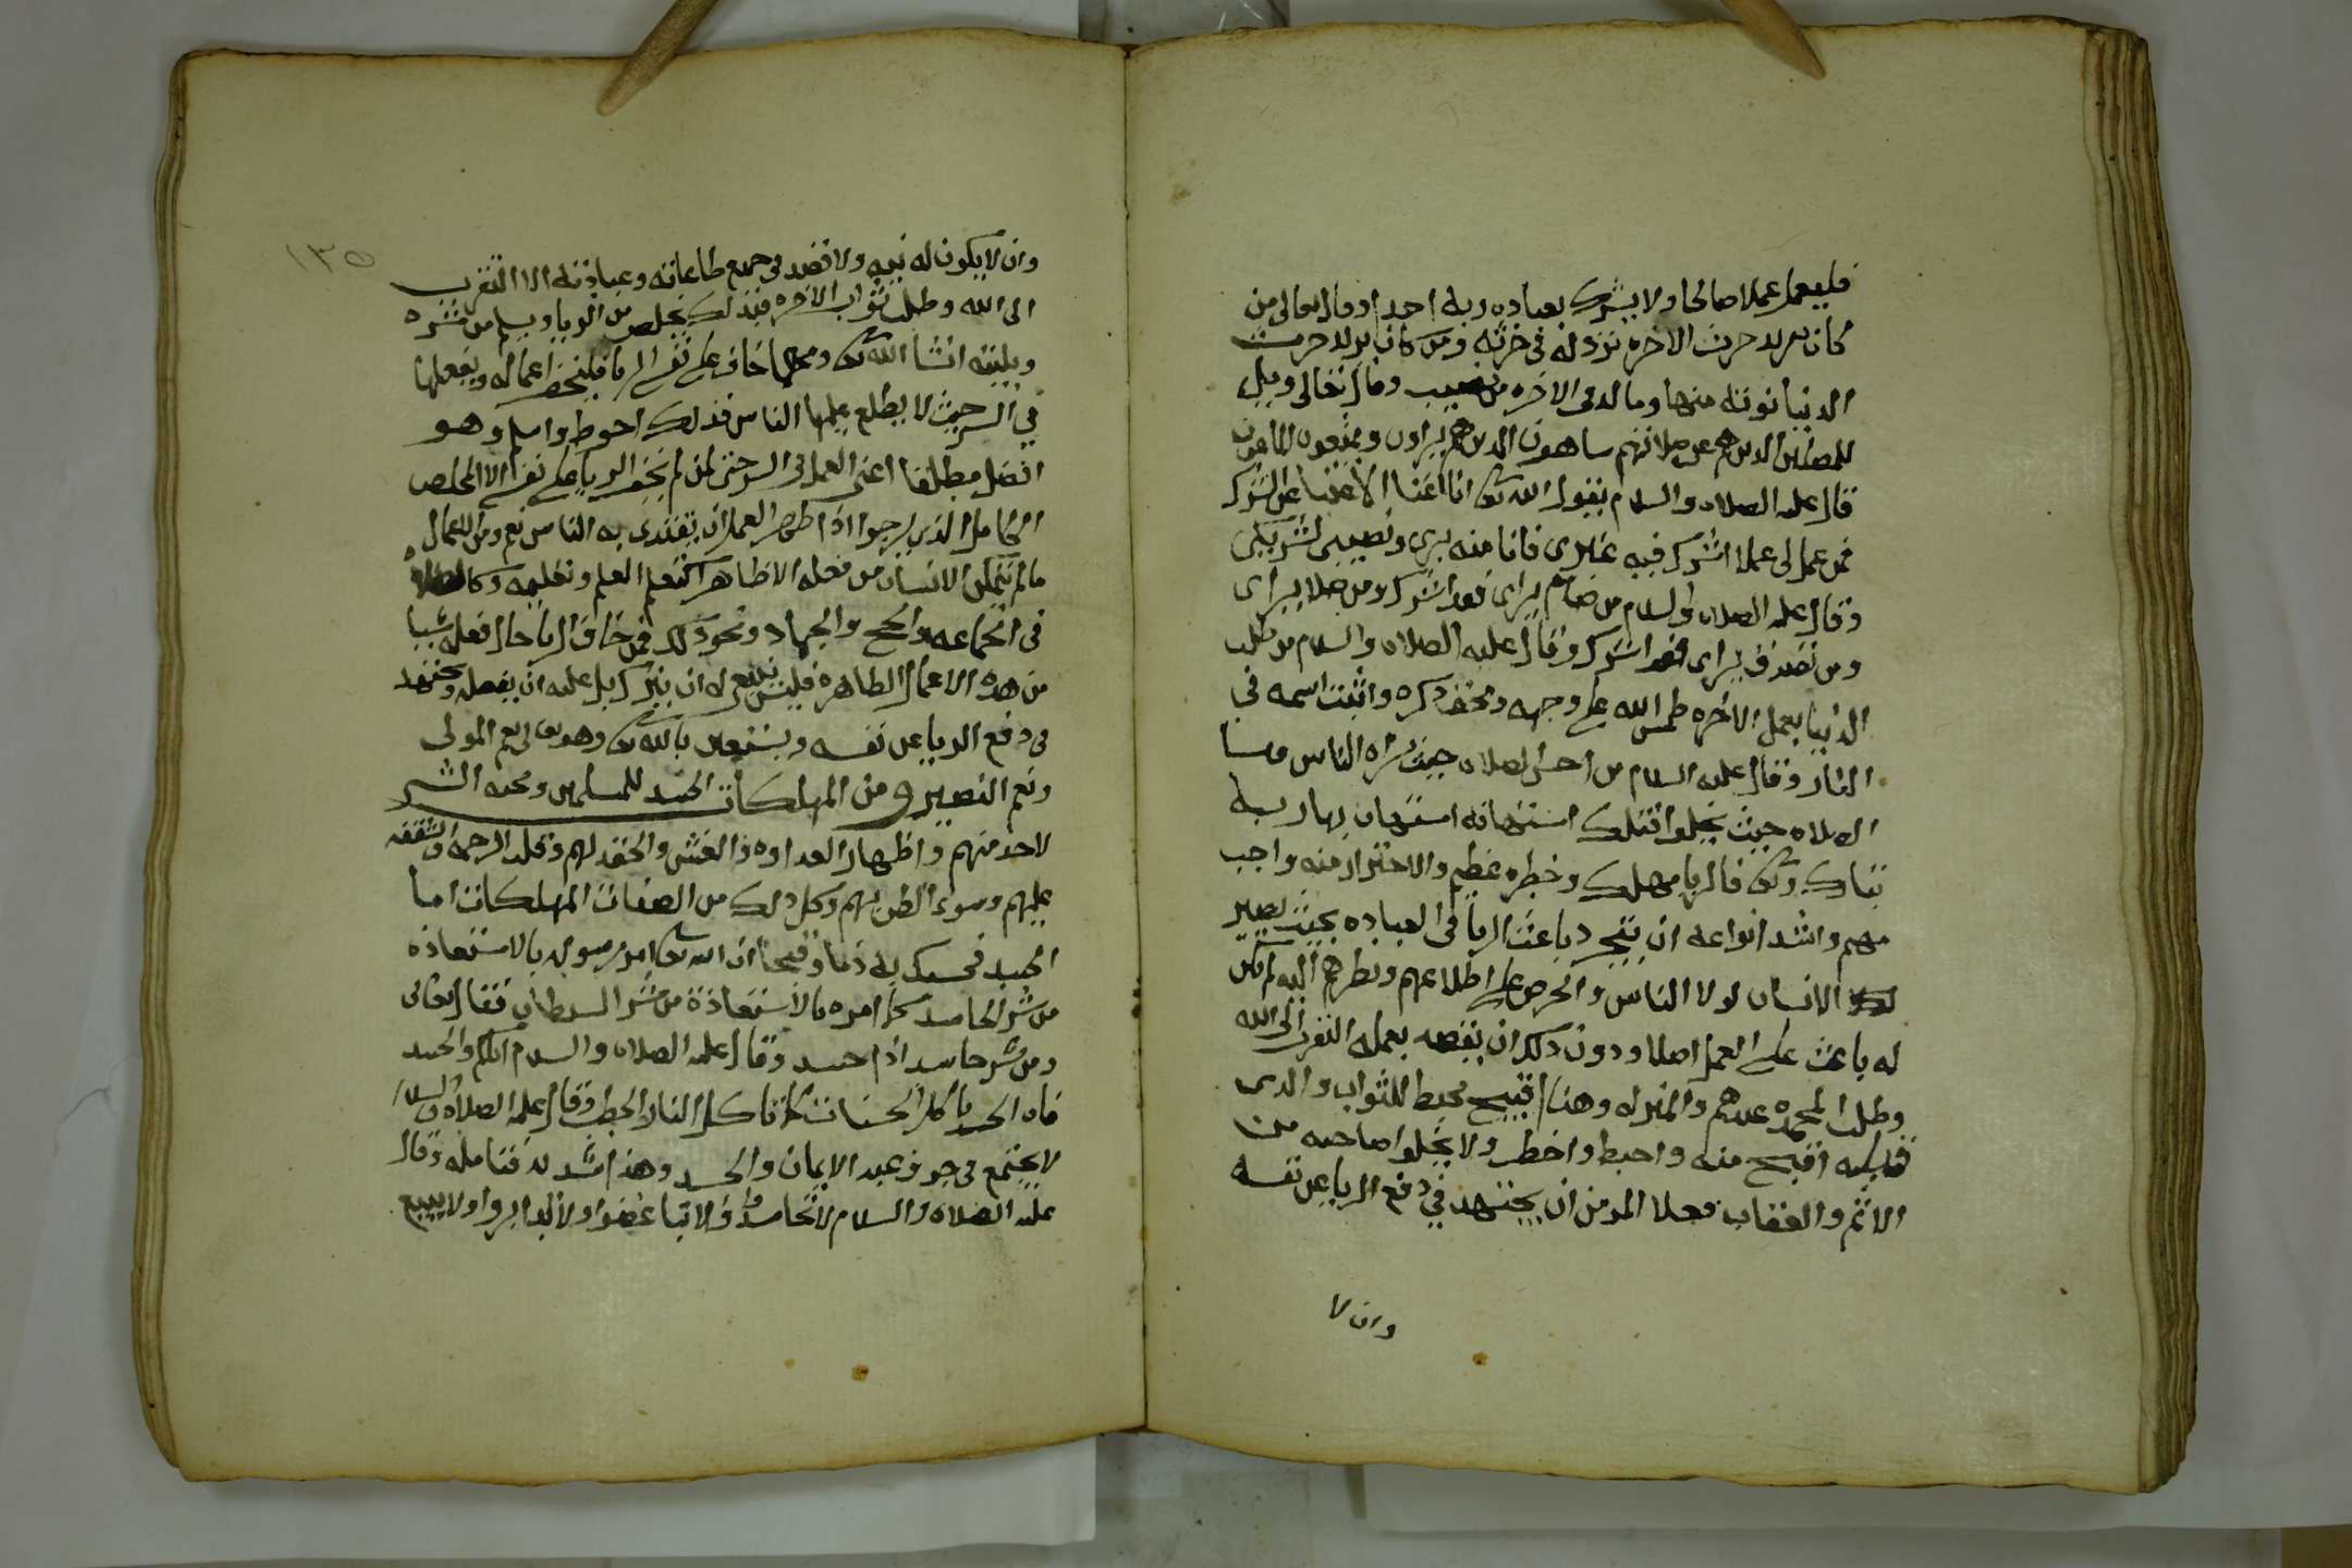 فليعمل عملا صالحا ولا يشرك بعباده ربه احدا وقال تعالى من
كان يريد حرث الاخره نزد له في حرثه ومن كان يريد حرث
الدنيا نوته منها وما له في الاخره من نصيب وقال تعالى ويل
للمصلين الدين هم عن صلاتهم ساهون الدين هم يراون ويمنعون الماعون
قال عليه الصلاه والسلام يقول الله تعالى انا اغنا الاغنيا عن الشرك
فمن عمل لى عملا اشرك فيه غيري فانا منه بري ونصيبى لشريكي
وقال عليه الصلاه والسلام من صام يراى فقد اشرك ومن صلا يراى
ومن تصدق يراى فقد اشرك وقال عليه الصلاه والسلام من طلب
الدنيا بعمل الاخره طمس الله على وجهه ومحق ذكره واثبت اسمه في
النار وقال عليه السلام من احسن الصلاه حيث يراه الناس واسا
الصلاه حيث يخلوا فتلك استهانه استهان بها ربه
تبارك وتعالى فالريا مهلك وخطره عظيم والاحتراز منه واجب
مهم واشد انواعه ان يتجرد باعث الريا في العباده بحيث يصير
الانسان لولا الناس والحرص على اطلاعهم ونظرهم اليه لم يكن
له باعث على العمل اصلا ودون ذلك ان يقصد بعمله التقرب الى الله
وطلب المحمده عندهم والمنزله وهذا قبيح محبط للثواب والدى
قبله اقبح منه واحبط واخطر ولا يخلوا صاحبه من
الاثم والعقاب فعلا المومن ان يجتهد في دفع الريا عن نفسه
وان لا
١٣٥
وان لا يكون له نيه ولا قصد في جميع طاعاته وعباداته الا التقرب
الى الله وطلب ثواب الاخره فبذلك يخلص من الريا ويسلم من شره
وبليته انشا الله تعالى ومهما خاف على نفسه الريا فليخف اعماله ويفعلها
في السر حيث لا يطلع عليها الناس فذلك احوط واسلم وهو
افضل مطلقا اعنى العمل في السر حتى لمن لم يخف الريا على نفسه الا المخلص
الكامل الذي يرجوا اذا اظهر العمل ان يقتدى به الناس نعم ومن الاعمال
ما لم يتمكن الانسان من فعله الا ظاهرا كتعلم العلم وتعليمه وكالصلاه
في الجماعه والحج والجهاد ونحو ذلك فمن خاف الريا حال فعله شيا
من هذه الاعمال الظاهره فليس ينبغى له ان يترك بل عليه ان يفعله ويجتهد
في دفع الريا عن نفسه ويستعين بالله تعالى وهو نعم المولى
ونعم النصير ومن المهلكات الحسد للمسلمين ومحبه الشر
لاحد منهم واظهار العداوه والغش والحقد لهم وقله الرحمه والشفقه
عليهم وسوء الظن بهم وكل ذلك من الصفات المهلكات اما
الحسد فحسبك به ذما وقبحا ان الله تعالى امر رسوله بالاستعاذه
من شر الحاسد كما امره بالاستعاذة من شر الشيطان فقال تعالى
ومن شر حاسد اذا حسد وقال عليه الصلاه والسلام اياكم والحسد
فان الحسد ياكل الحسنات كما تاكل النار الحطب وقال عليه الصلاه والسلام
لا يجتمع في جوف عبد الايمان والحسد وهذا اشد لد فتامله وقال
عليه الصلاه والسلام لا تحاسدوا ولا تباغضوا ولا تدابروا ولا يبيع